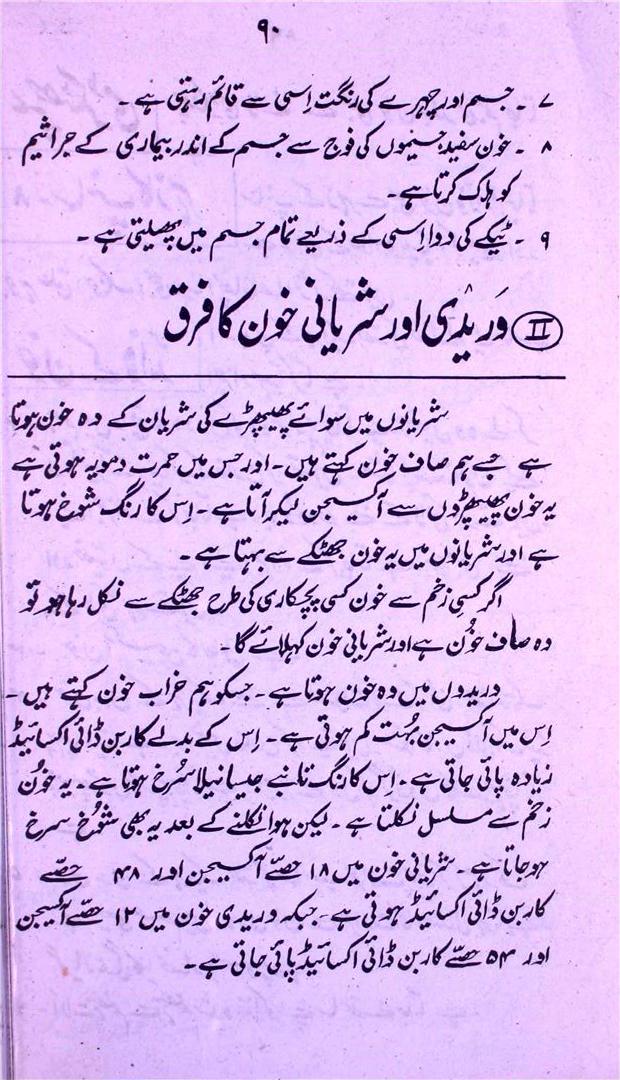 ۹۰
۷ ۔ جسم اور چہرے کی رنگت اِسی سے قائم رہتی ہے ۔
۸ ۔ خون سفید جسیموں کی فوج سے جسم کے اندر بیماری کے جراثیم
کو ہلاک کرتا ہے۔
۹ ۔ ٹیکے کی دوا اِسی کے ذریعے تمام جسم میں پھیلتی ہے ۔
II وَریدی اور شریانی خون کا فرق
شریانوں میں سوائے پھیپھڑے کی شریان کے وہ خون ہوتا
ہے جسے ہم صاف خون کہتے ہیں۔ اور جس میں حمرت دمویہ ہوتی ہے
یہ خون پھیپھڑوں سے آکسیجن لیکر آتا ہے ۔ اِس کا رنگ شوخ ہوتا
ہے اور شریانوں میں یہ خون جھٹکے سے بہتا ہے ۔
اگر کسی زخم سے خون کسی پچکاری کی طرح جھٹکے سے نکل رہا ہو تو
وہ صاف خُون ہے اور شریانی خون کہلائے گا ۔
وریدوں میں وہ خون ہوتا ہے ۔ جسکو ہم خراب خون کہتے ہیں ۔
اِس میں آکسیجن بہُت کم ہوتی ہے ۔ اِس کے بدلے کاربن ڈائی اکسائیڈ
زیادہ پائی جاتی ہے ۔ اِس کا رنگ تانبے جیسا نیلا سُرخ ہوتا ہے ۔ یہ خُون
زخم سے مسلسل نکلتا ہے ۔ لیکن ہوا نکلنے کے بعد یہ بھی شوُخ سرخ
ہو جاتا ہے ۔ شریانی خون میں ۱۸ حصّے آکسیجن اور ۴۸ حصّے
کاربن ڈائی اکسائیڈ ہوتی ہے ۔ جبکہ وریدی خون میں ۱۲ حصّے آکسیجن
اور ۵۴ حصّے کاربن ڈائی اکسائیڈ پائی جاتی ہے ۔